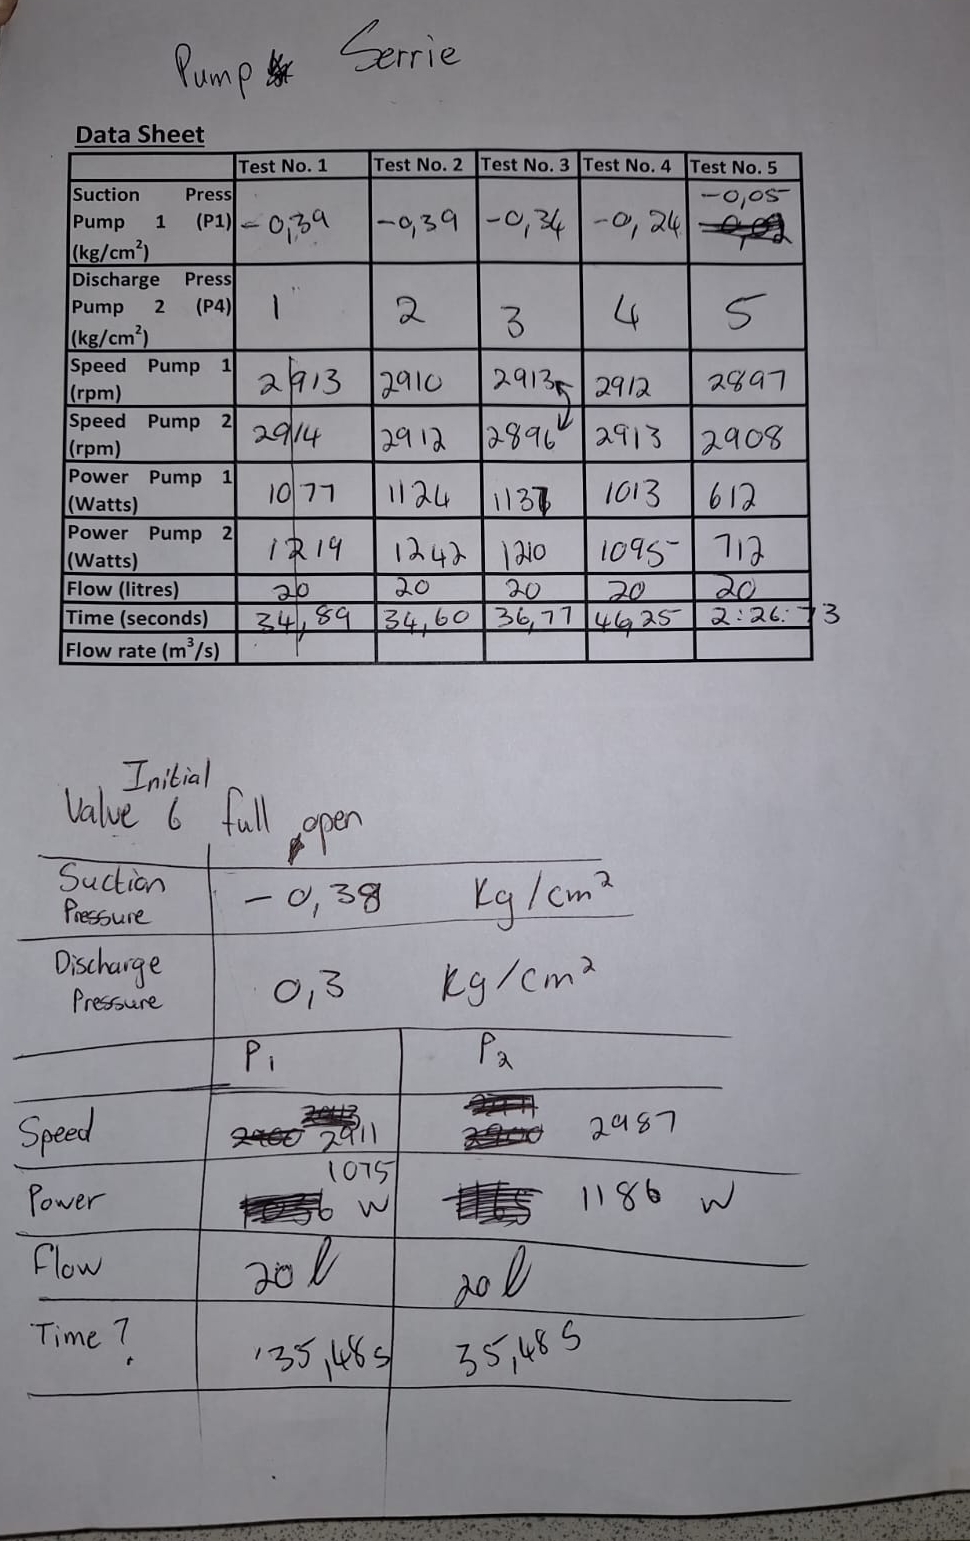 Pump Serrie
Data Sheet
Test No. 1 Test No. 2 Test No. 3 Test No. 4 Test No. 5
Suction Press Pump 1 (P1) (kg/cm²) -0,39 -0,39 -0,34 -0,24 -0,05
Discharge Press Pump 2 (P4) (kg/cm²) 1 2 3 4 5
Speed Pump 1 (rpm) 2913 2910 2913 2912 2897
Speed Pump 2 (rpm) 2914 2912 2896 2913 2908
Power Pump 1 (Watts) 1077 1124 1137 1013 612
Power Pump 2 (Watts) 1219 1242 1210 1095 712
Flow (litres) 20 20 20 20 20
Time (seconds) 34,89 34,60 36,77 46,25 2:26:73
Flow rate (m³/s)
Initial
Valve 6 full open
Suction Pressure -0,38 Kg/cm²
Discharge Pressure 0,3 Kg/cm²
P1 P2
Speed 2911 2987
Power 1075 W 1186 W
Flow 20 l 20 l
Time ? 35,48 s 35,48 s